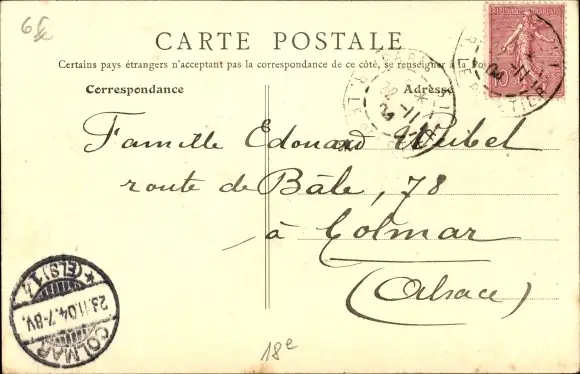 CARTE POSTALE
Certains pays étrangers n'acceptent pas la correspondance de ce côté, se renseigner à la
Correspondance
Adresse
Famille Edouard Weibel
route de Bâle, 78
à Colmar
(Alsace)
COLMAR
23.11.04.7-8V.
(ELS)
18e
10